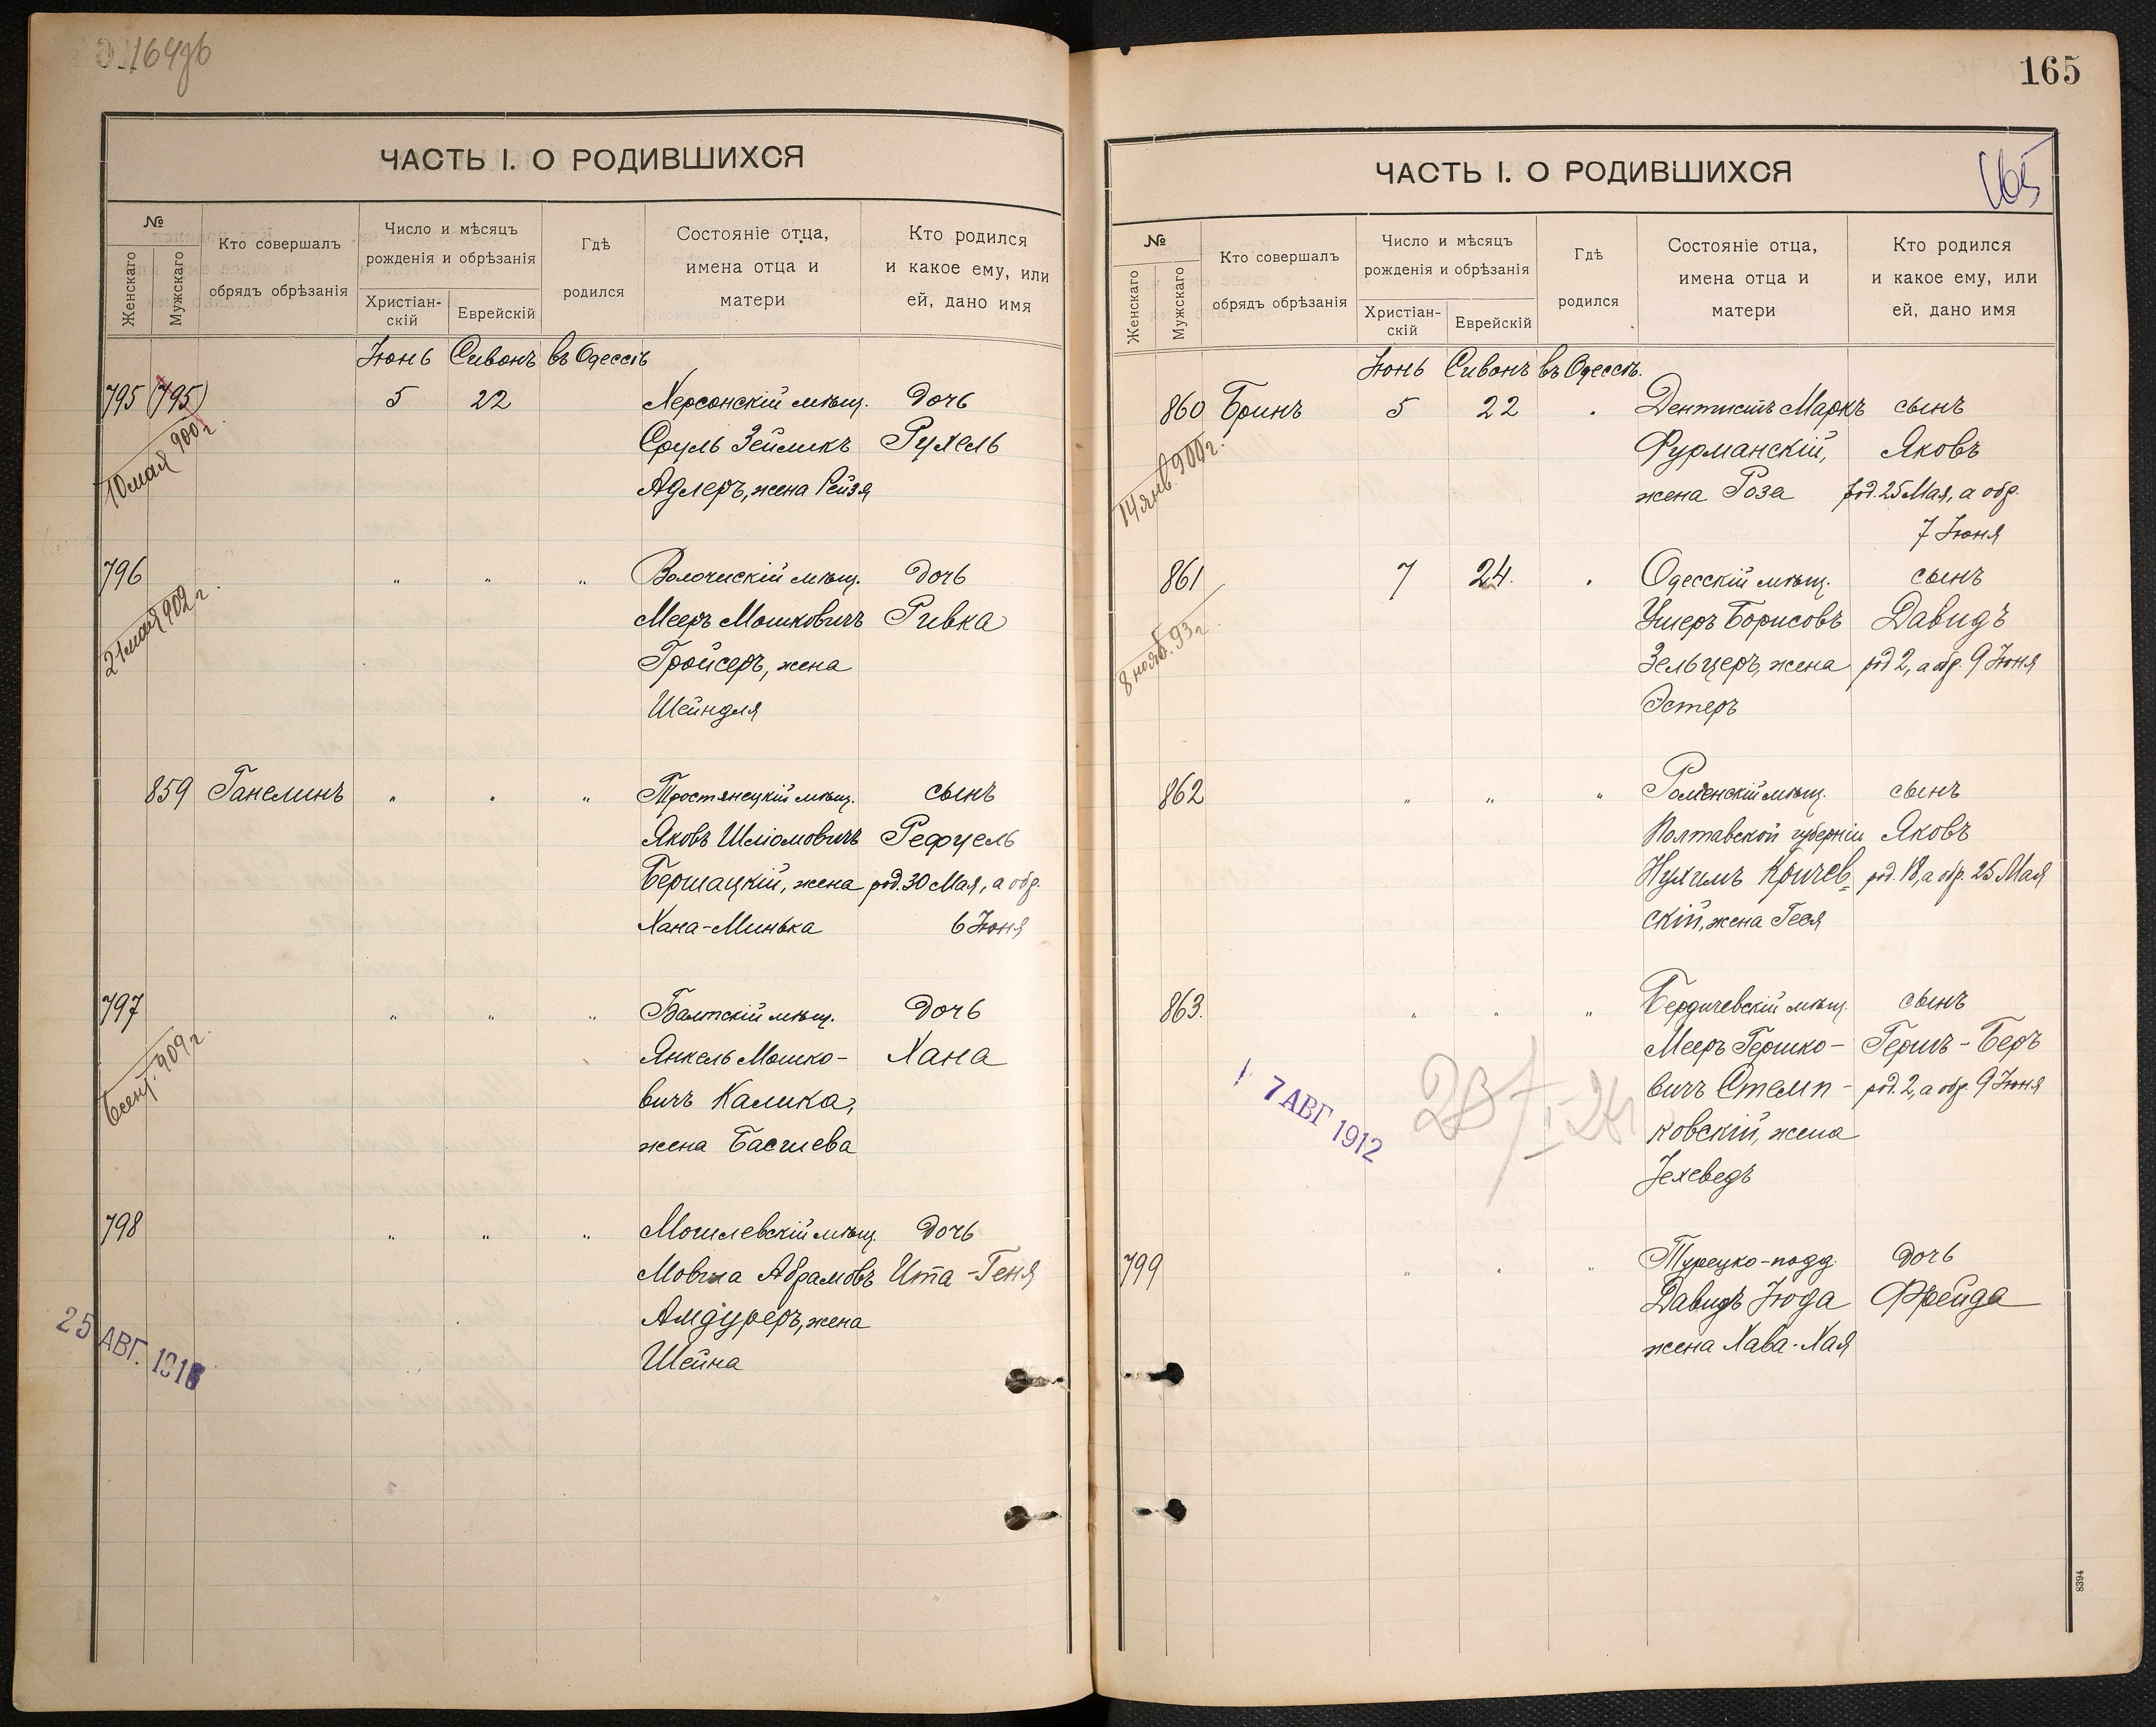 164об
ЧАСТЬ I. О РОДИВШИХСЯ
№
Женскаго
Мужскаго
Кто совершалъ
обрядъ обрѣзанія
Число и мѣсяцъ
рожденія и обрѣзанія
Христіан-
скій
Еврейскій
Гдѣ
родился
Состояніе отца,
имена отца и
матери
Кто родился
и какое ему, или
ей, дано имя
Іюнь Сивонъ въ Одессѣ
795 (795) 5 22 Херсонскій мѣщ. дочь
Сруль Зейликъ Рухель
Адлеръ, жена Рейзя
10 мая 900 г.
796 " " " Волочискій мѣщ. дочь
Мееръ Мошковичъ Ривка
Гройсеръ, жена
Шейндля
21 мая 902 г.
859 Ганелинъ " " " Тростянецкій мѣщ. сынъ
Яковъ Шліомовичъ Рефуель
Бершацкій, жена род. 30 Мая, а обр.
Хана-Минька 6 Іюня
797 " " " Балтскій мѣщ. дочь
Янкель Мошко- Хана
вичъ Калика,
жена Басшева
6 сент. 909 г.
798 " " " Могилевскій мѣщ. дочь
Мовша Абрамовъ Ита-Геня
Амдуреръ, жена
Шейна
25 АВГ. 191
165
ЧАСТЬ I. О РОДИВШИХСЯ
165
№
Женскаго
Мужскаго
Кто совершалъ
обрядъ обрѣзанія
Число и мѣсяцъ
рожденія и обрѣзанія
Христіан-
скій
Еврейскій
Гдѣ
родился
Состояніе отца,
имена отца и
матери
Кто родился
и какое ему, или
ей, дано имя
Іюнь Сивонъ въ Одессѣ.
860 Бринъ 5 22 " Дентистъ Маркъ сынъ
Фурманскій, Яковъ
жена Роза род. 25 Мая, а обр.
7 Іюня
14 янв. 900 г.
861 7 24. " Одесскій мѣщ. сынъ
Ушеръ Борисовъ Давидъ
Зельцеръ, жена род 2, а обр. 9 Іюня
Эстеръ
8 нояб. 93 г.
862 " " " Роменскій мѣщ. сынъ
Полтавской губерніи Яковъ
Нухимъ Кричев= род. 18, а обр. 25 Мая
скій, жена Геся
863. " " " Бердичевскій мѣщ. сынъ
Мееръ Гершко- Гершъ-Беръ
вичъ Стемп- род. 2, а обр. 9 Іюня
ковскій, жена
Іехеведъ
7 АВГ 1912
799 " " " Турецко-подд. дочь
Давидъ Іюда Фрейда
жена Хава-Хая
8394